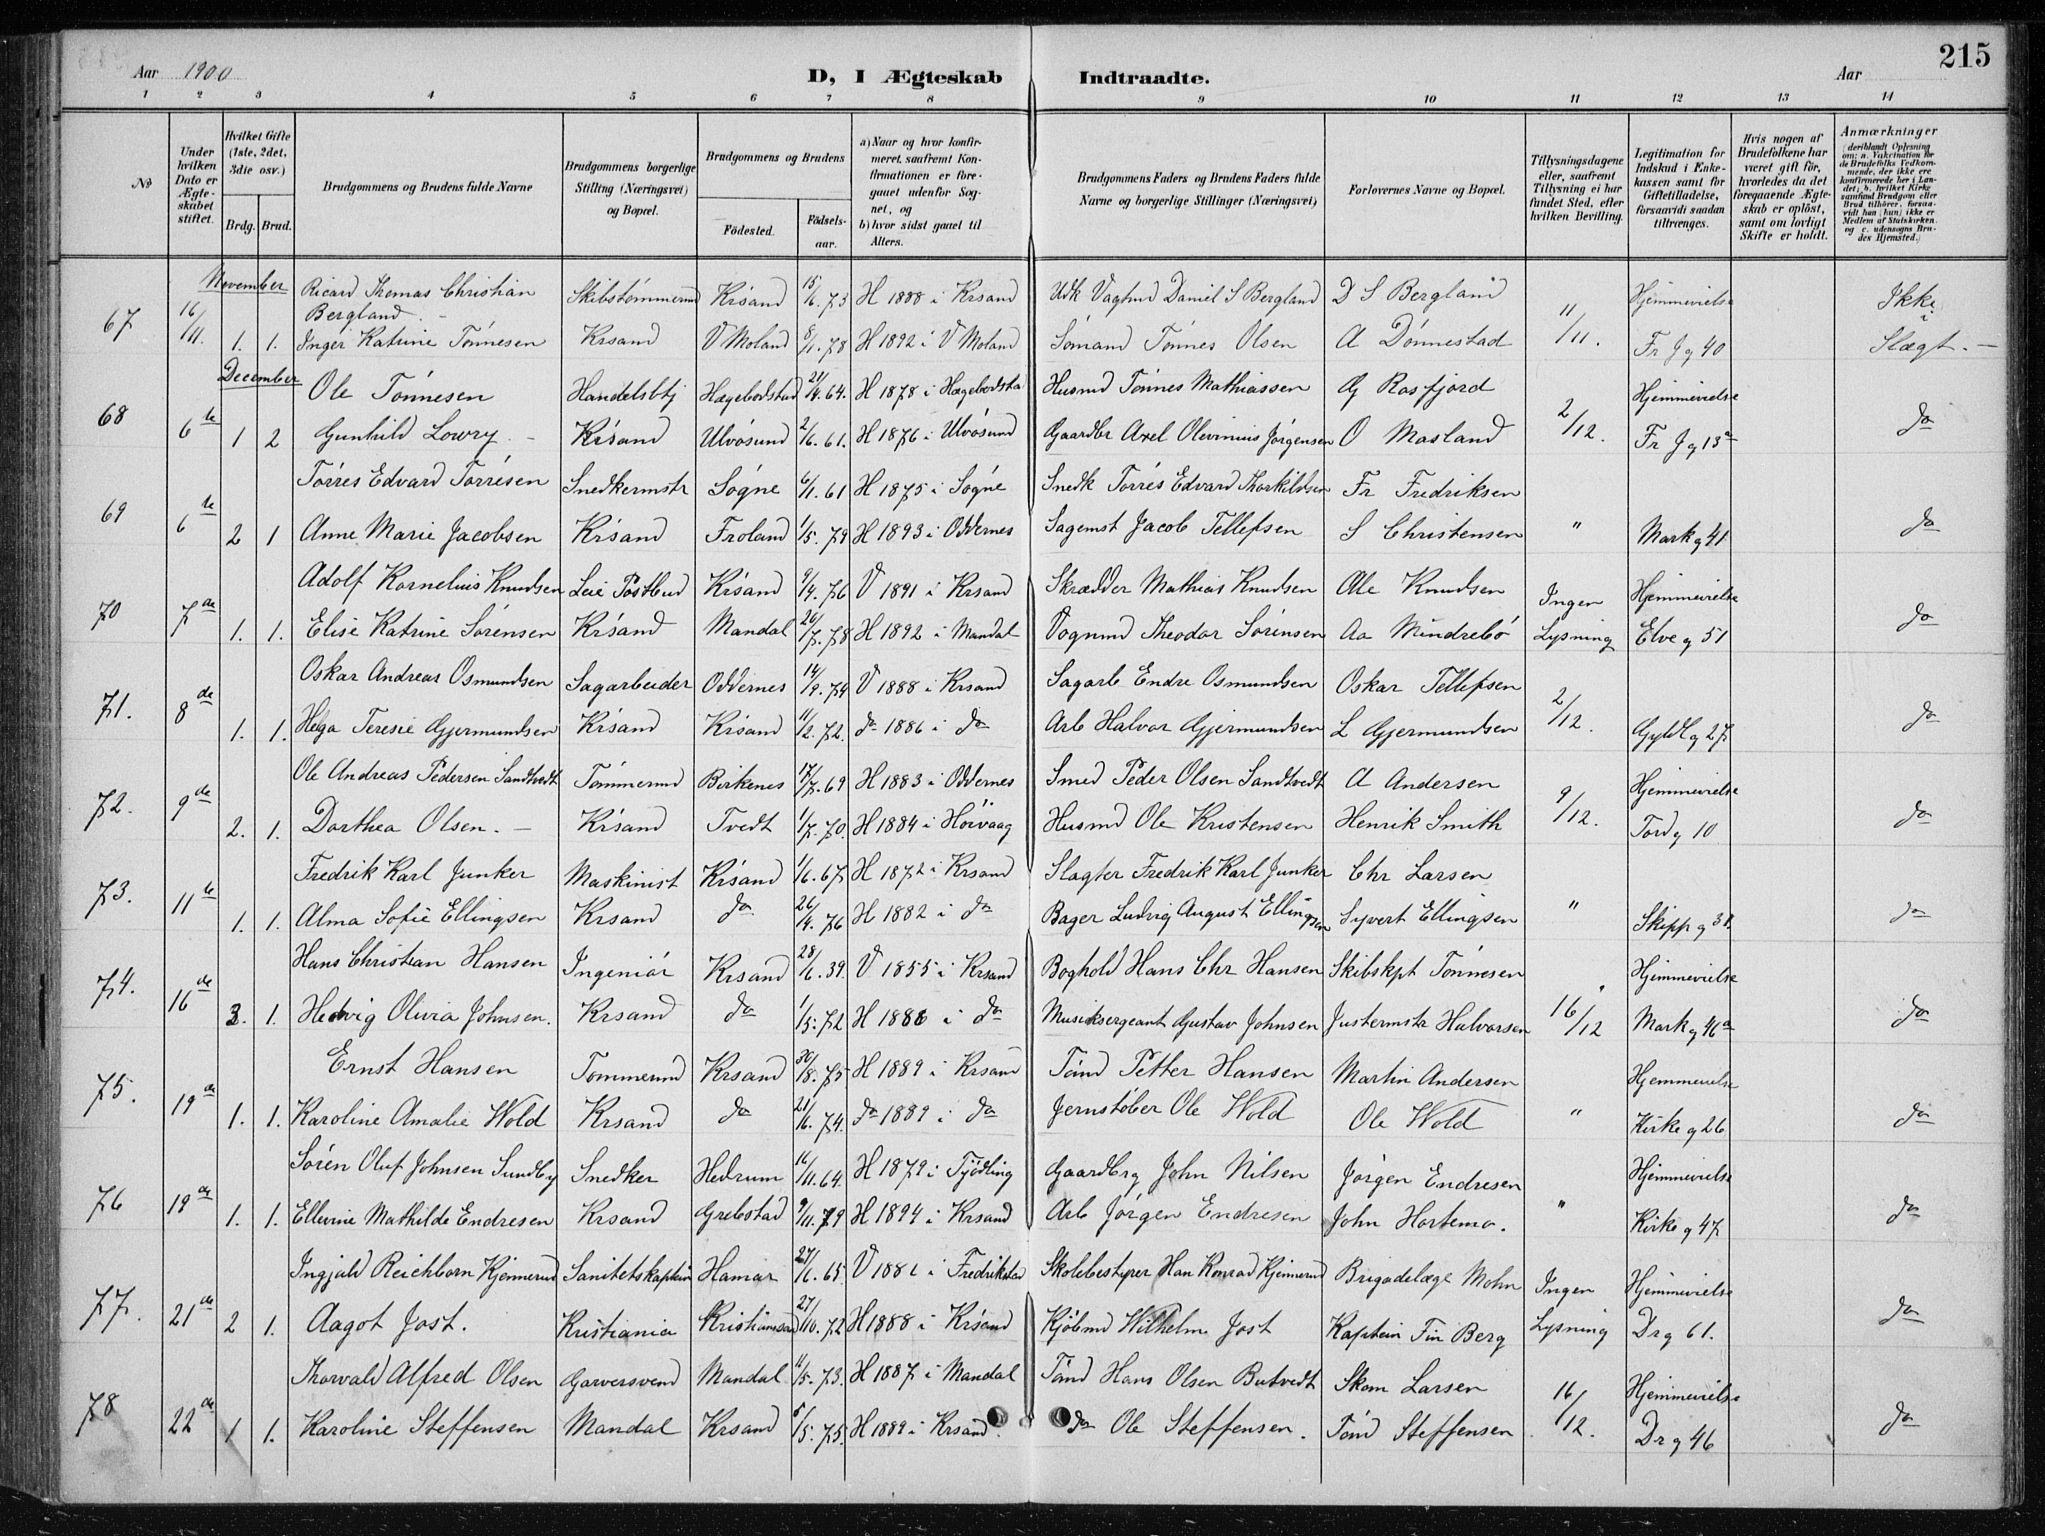 215
Aar 1900 D, I Ægteskab Indtraadte. Aar
1 2 3 4 5 6 7 8 9 10 11 12 13 14
No
Under hvilken Dato er Ægteskabet stiftet.
Hvilket Gifte (1ste, 2det, 3die osv.)
Brdg. Brud.
Brudgommens og Brudens fulde Navne
Brudgommens borgerlige Stilling (Næringsvei) og Bopæl.
Brudgommens og Brudens
Fødested. Fødselsaar.
a) Naar og hvor konfirmeret, saafremt Konfirmationen er foregaaet udenfor Sognet, og
b) hvor sidst gaaet til Alters.
Brudgommens Faders og Brudens Faders fulde Navne og borgerlige Stillinger (Næringsvei)
Forlovernes Navne og Bopæl.
Tillysningsdagene eller, saafremt Tillysning ei har fundet Sted, efter hvilken Bevilling.
Legitimation for Indskud i Enkekassen samt for Giftetilladelse, forsaavidt saadan tiltrænges.
Hvis nogen af Brudefolkene har været gift før, hvorledes da det foregaaende Ægteskab er opløst, samt om lovligt Skifte er holdt.
Anmærkninger (deriblandt Oplysning om: a. Vakcination for de Brudefolks Vedkommende, der ikke ere konfirmerede her i Landet; b. hvilket Kirkesamfund Brudgom eller Brud tilhører, forsaavidt han (hun) ikke er Medlem af Statskirken, og c. udensogns Brudes Hjemsted.)
November
Ricard Thomas Christian Bergland Skibstømmermd Krsand 15/6.73 H 1888 i Krsand Udk Vagtmd Daniel S Bergland D S Bergland Hjemmevielse Ikke i
67 16/11. 1. 1. Inger Katrine Tønnesen Krsand V Moland 8/1.78 H 1892 i V Moland Sømand Tønnes Olsen A Dønnestad 11/11. Fr J g 40 Slægt.
December
Ole Tønnesen Handelsbtj Hægebodstad 21/4.64. H 1878 i Hægebodsta Husmd Tønnes Mathiassen G Rosfjord Hjemmevielse
68 6te 1 2 Gunhild Lowry Krsand Ulvøsund 2/6.61. H 1876 i Ulvøsund Gaardbr Axel Olevinius Jørgensen O Masland 2/12. Fr J g 13a do
Tørres Edvard Tørresen Snedkermstr Søgne 6/1.61 H 1875 i Søgne Snedk Tørres Edvard Thorkildsen Fr Fredriksen
69 6te 2 1 Anne Marie Jacobsen Krsand Froland 1/5.79 H 1893 i Oddernes Sagemst Jacob Tellefsen S Christensen " Mark g 41 do
Adolf Kornelius Knudsen Leie Postbud Krsand 9/4.76 V 1891 i Krsand Skrædder Mathias Knudsen Ole Knudsen Ingen Hjemmevielse
70 7de 1. 1. Elise Katrine Sørensen Krsand Mandal 26/7.78 H 1892 i Mandal Vognmd Theodor Sørensen Aa Mindrebø Lysning Elve g 51 do
Oskar Andreas Osmundsen Sagarbeider Oddernes 14/9.74 V 1888 i Krsand Sagarb Endre Osmundsen Oskar Tellefsen
71. 8de 1. 1. Helga Teresie Gjermundsen Krsand Krsand 11/2.72. do 1886 i do Arb Halvor Gjermundsen L Gjermundsen 2/12. Gyldl g 27 do
Ole Andreas Pedersen Sandtvedt Tømmermd Birkenes 17/7.69 H 1883 i Oddernes Smed Peder Olsen Sandtvedt A Andersen Hjemmevielse
72. 9de 2. 1. Dorthea Olsen. Krsand Tvedt 1/7.70. H 1884 i Høivaag Husmd Ole Kristensen Henrik Smith 9/12. Tord g 10 do
Fredrik Karl Junker Maskinist Krsand 1/6.67 H 1872 i Krsand Slagter Fredrik Karl Junker Chr Larsen
73. 11te 1. 1. Alma Sofie Ellingsen Krsand do 26/4.76 H 1882 i do Bager Ludvig August Ellingsen Syvert Ellingsen " Skipp g 38. do
Hans Christian Hansen Ingeniør Krsand 28/6.39. V 1855 i Krsand Boghold Hans Chr Hansen Skibskpt Tønnesen Hjemmevielse
74. 16de 3. 1. Hedvig Olivia Johnsen. Krsand do 1/5.72 H 1886 i do Musiksergeant Gustav Johnsen Justermstr Halvorsen 16/12 Mark g 46a do
Ernst Hansen Tømmermd Krsand 30/8.75 H 1889 i Krsand Tømd Petter Hansen Martin Andersen Hjemmevielse
75. 19de 1. 1. Karoline Amalie Wold Krsand do 21/6.74. do 1889 i do Jernstøber Ole Wold Ole Wold " Kirke g 26 do
Søren Oluf Johnsen Sundby Snedker Hedrum 16/11.64. H 1879 i Tjødling Gaardbrg John Nilsen Jørgen Endresen Hjemmevielse
76 19de 1. 1. Ellevine Mathilde Endresen Krsand Grebstad 9/11.79 H 1894 i Krsand Arb Jørgen Endresen John Hortemo. " Kirke g 47 do
Ingjald Reichborn Kjennerud Sanitetskaptein Hamar 27/6.65. V 1881 i Fredrikstad Skolebestyrer Han Konrad Kjennerud Brigadelæge Mohn Ingen Hjemmevielse
77. 21de 2 1. Aagot Jost. Kristiania Kristiansand 27/10.72 H 1888 i Krsand Kjøbmd Wilhelm Jost Kaptein Fin Berg Lysning Dr g 61. do
Thorvald Alfred Olsen Garversvend Mandal 11/5.73. H 1887 i Mandal Tømd Hans Olsen Butvedt Skom Larsen 16/12. Hjemmevielse
78 22de 1 1. Karoline Steffensen Mandal Krsand 5/5.75. H 1889 i Krsand. do Ole Steffensen. Tømd Steffensen Dr g 46 do